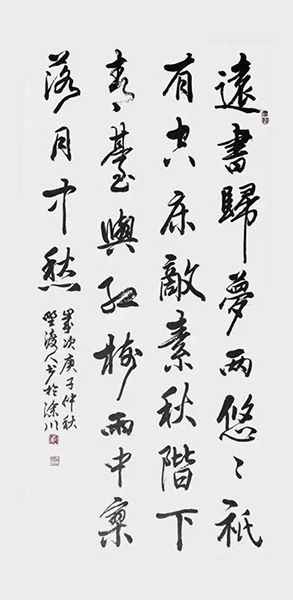 遠書歸夢兩悠〻祇
有空床敵素秋階下
青臺與紅樹雨中寥
落月中愁
歲次庚子仲秋
墅渡人书於川